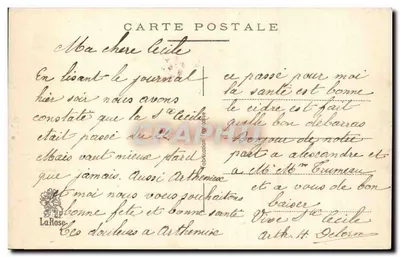 CARTE POSTALE
Ma chere Cecile
En lisant le journal
hier soir nous avons
constaté que la Ste Cecile
etait passé
Mais vaut mieux tard
que jamais. Aussi Arthemise
et moi nous vous souhaitons
bonne fete et bonne santé
Les douleurs a Arthemise
ce passé pour moi
la santé est bonne
le cidre est fait
quelle bon debarras
de notre
part a alescendre et
a Mr Mme
et a vous de bon
baiser
Vive Ste Cecile
Arth H
La Rose